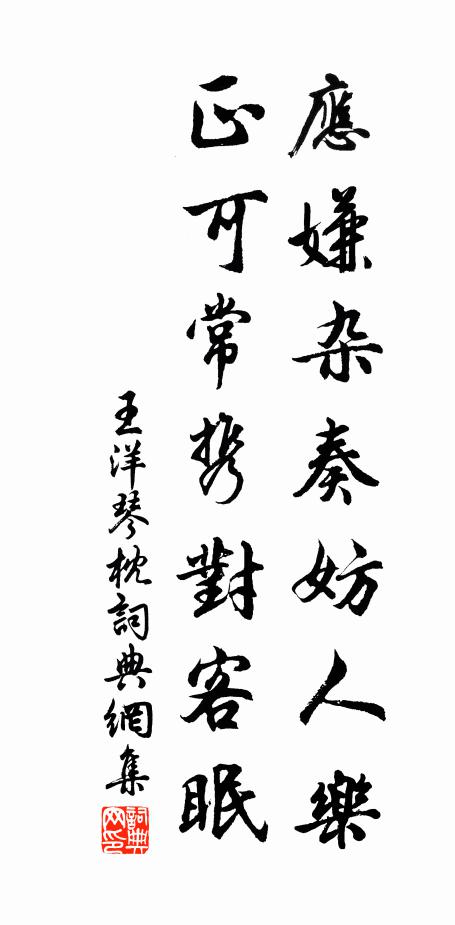 應嫌杂奏妨人樂
正可常携對客眠
王洋琴枕詞典網集
詞典网印